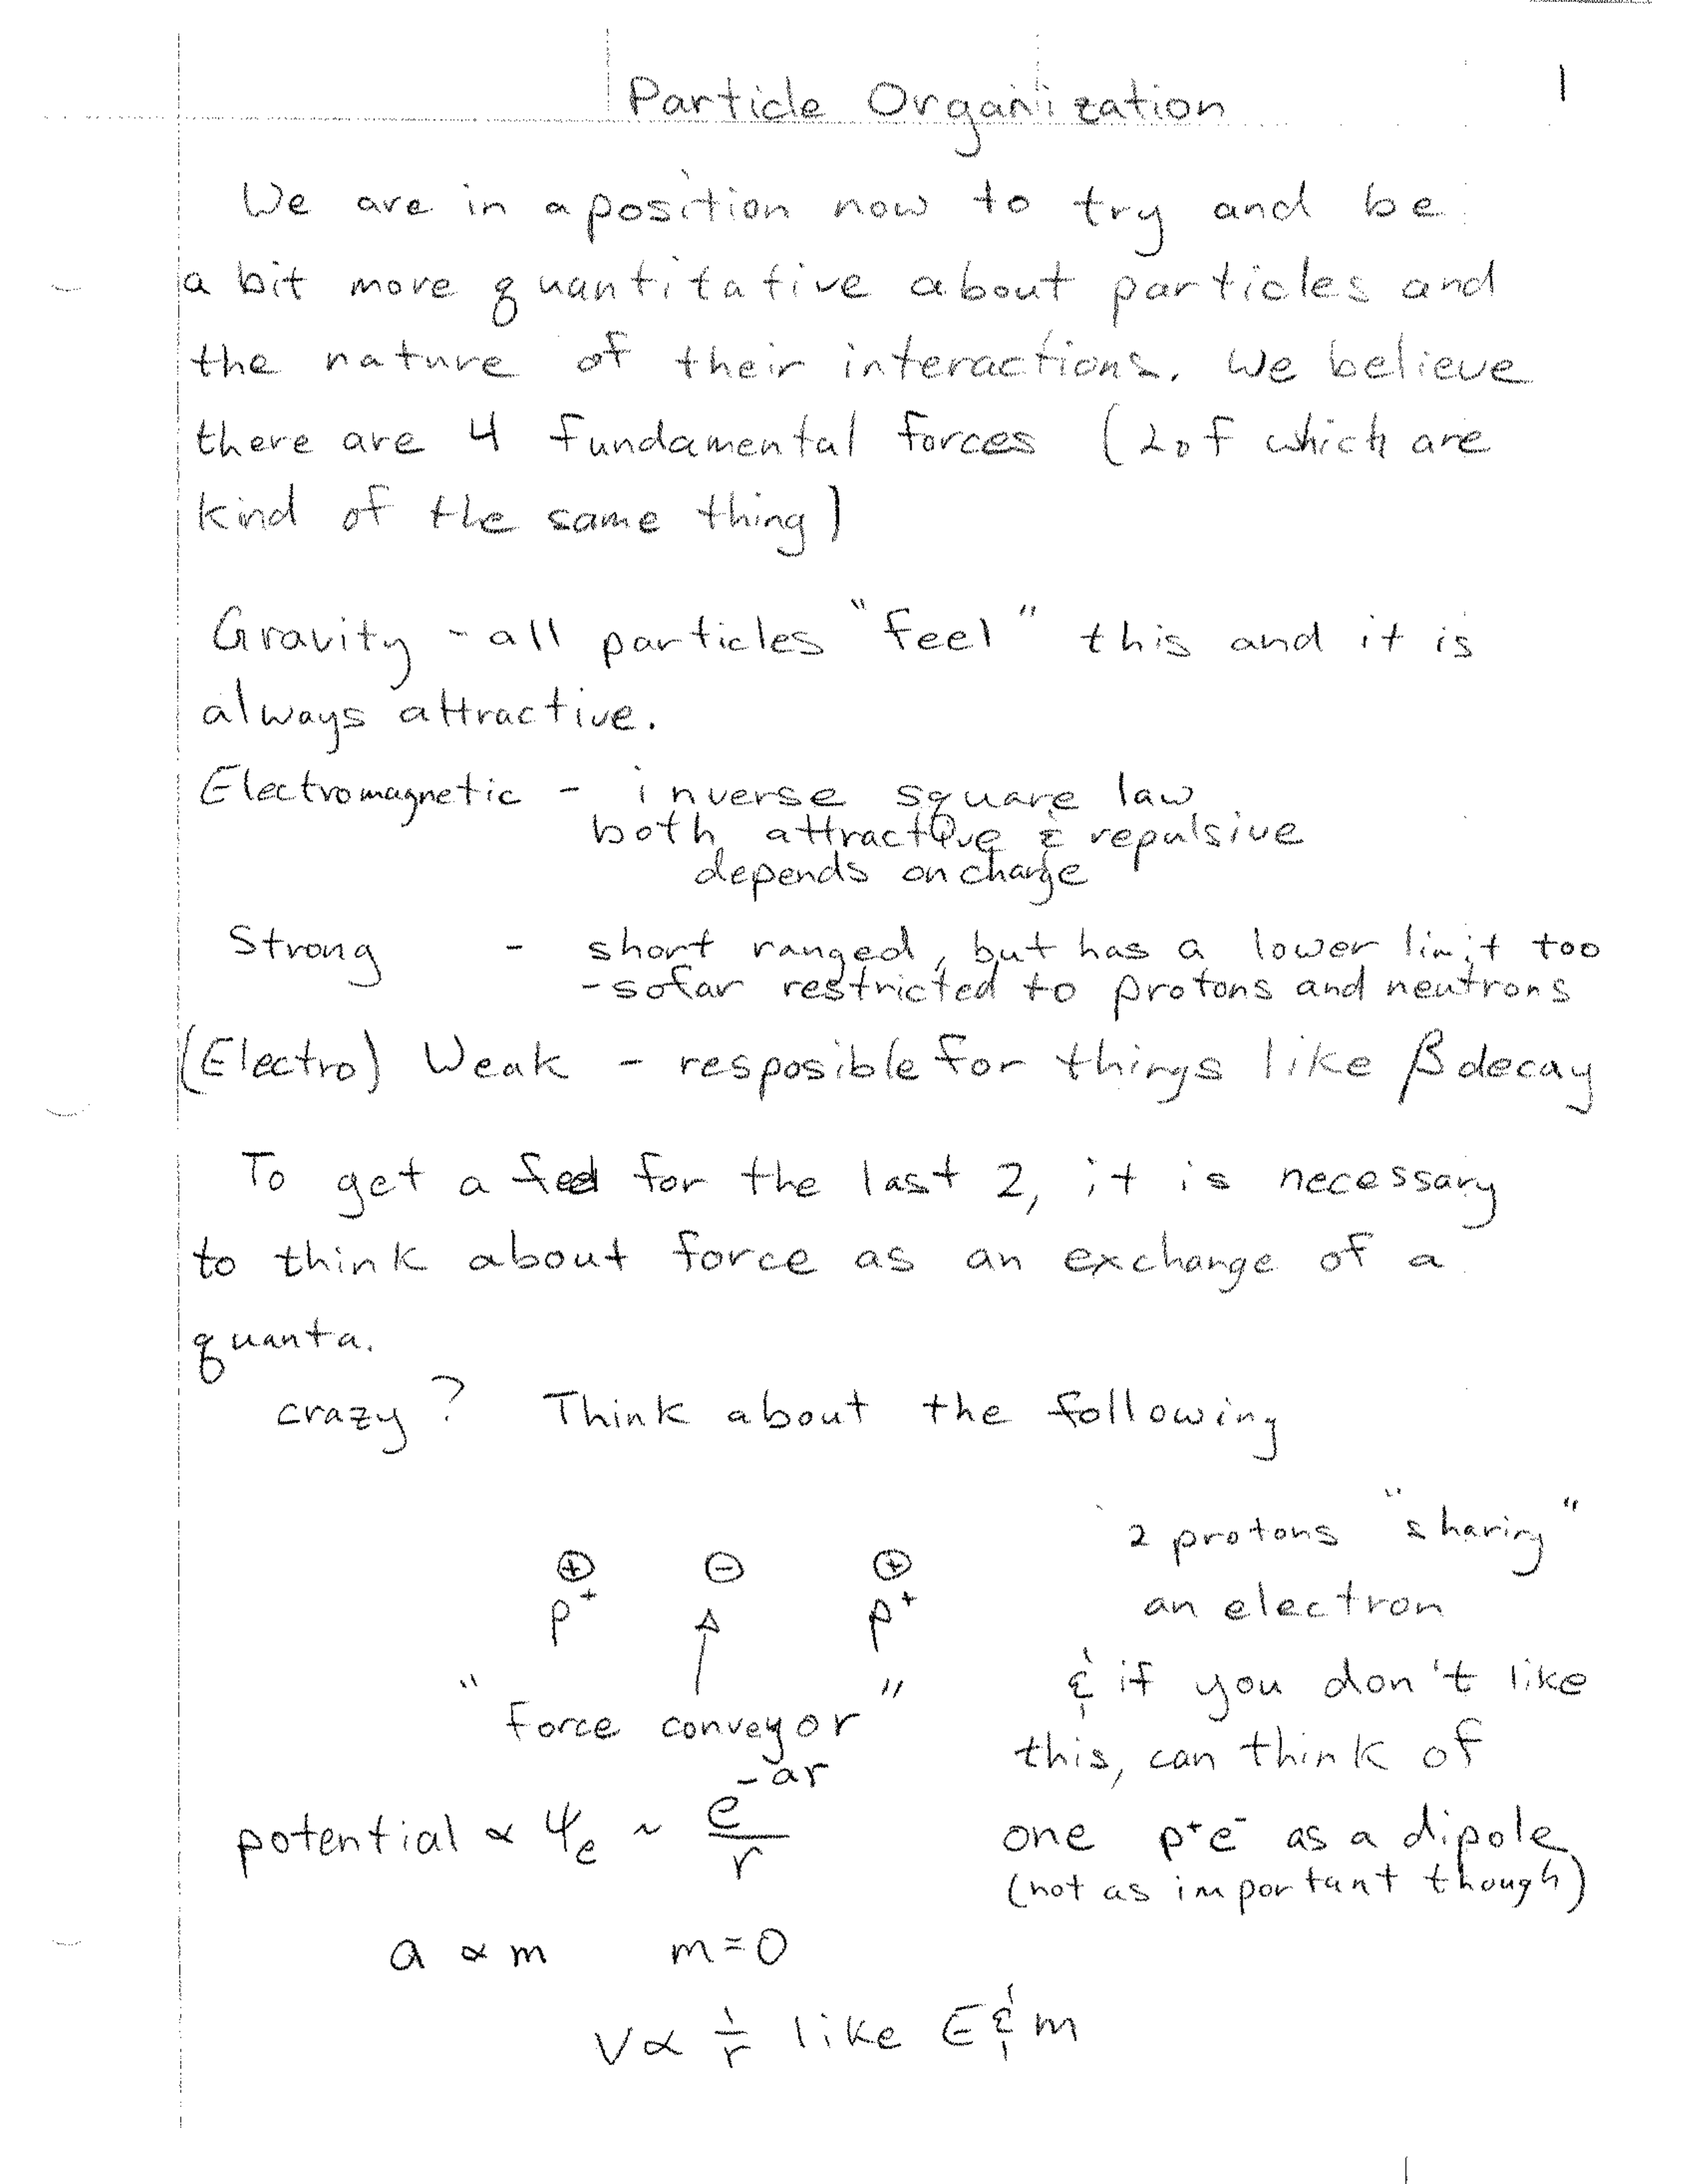 Particle Organization
1
We are in a position now to try and be
a bit more quantitative about particles and
the nature of their interactions. We believe
there are 4 fundamental forces (2 of which are
kind of the same thing)
Gravity - all particles "feel" this and it is
always attractive.
Electromagnetic - inverse square law
both attractive & repulsive
depends on charge
Strong - short ranged, but has a lower limit too
- so far restricted to protons and neutrons
(Electro) Weak - resposible for things like β decay
To get a feel for the last 2, it is necessary
to think about force as an exchange of a
quanta.
crazy? Think about the following
⊕ ⊖ ⊕
p⁺ p⁺
"force conveyor"
2 protons "sharing"
an electron
& if you don't like
this, can think of
one p⁺e⁻ as a dipole
(not as important though)
potential ∝ Ψₑ ~ e^(-ar)/r
a ∝ m m=0
V ∝ 1/r like E & m